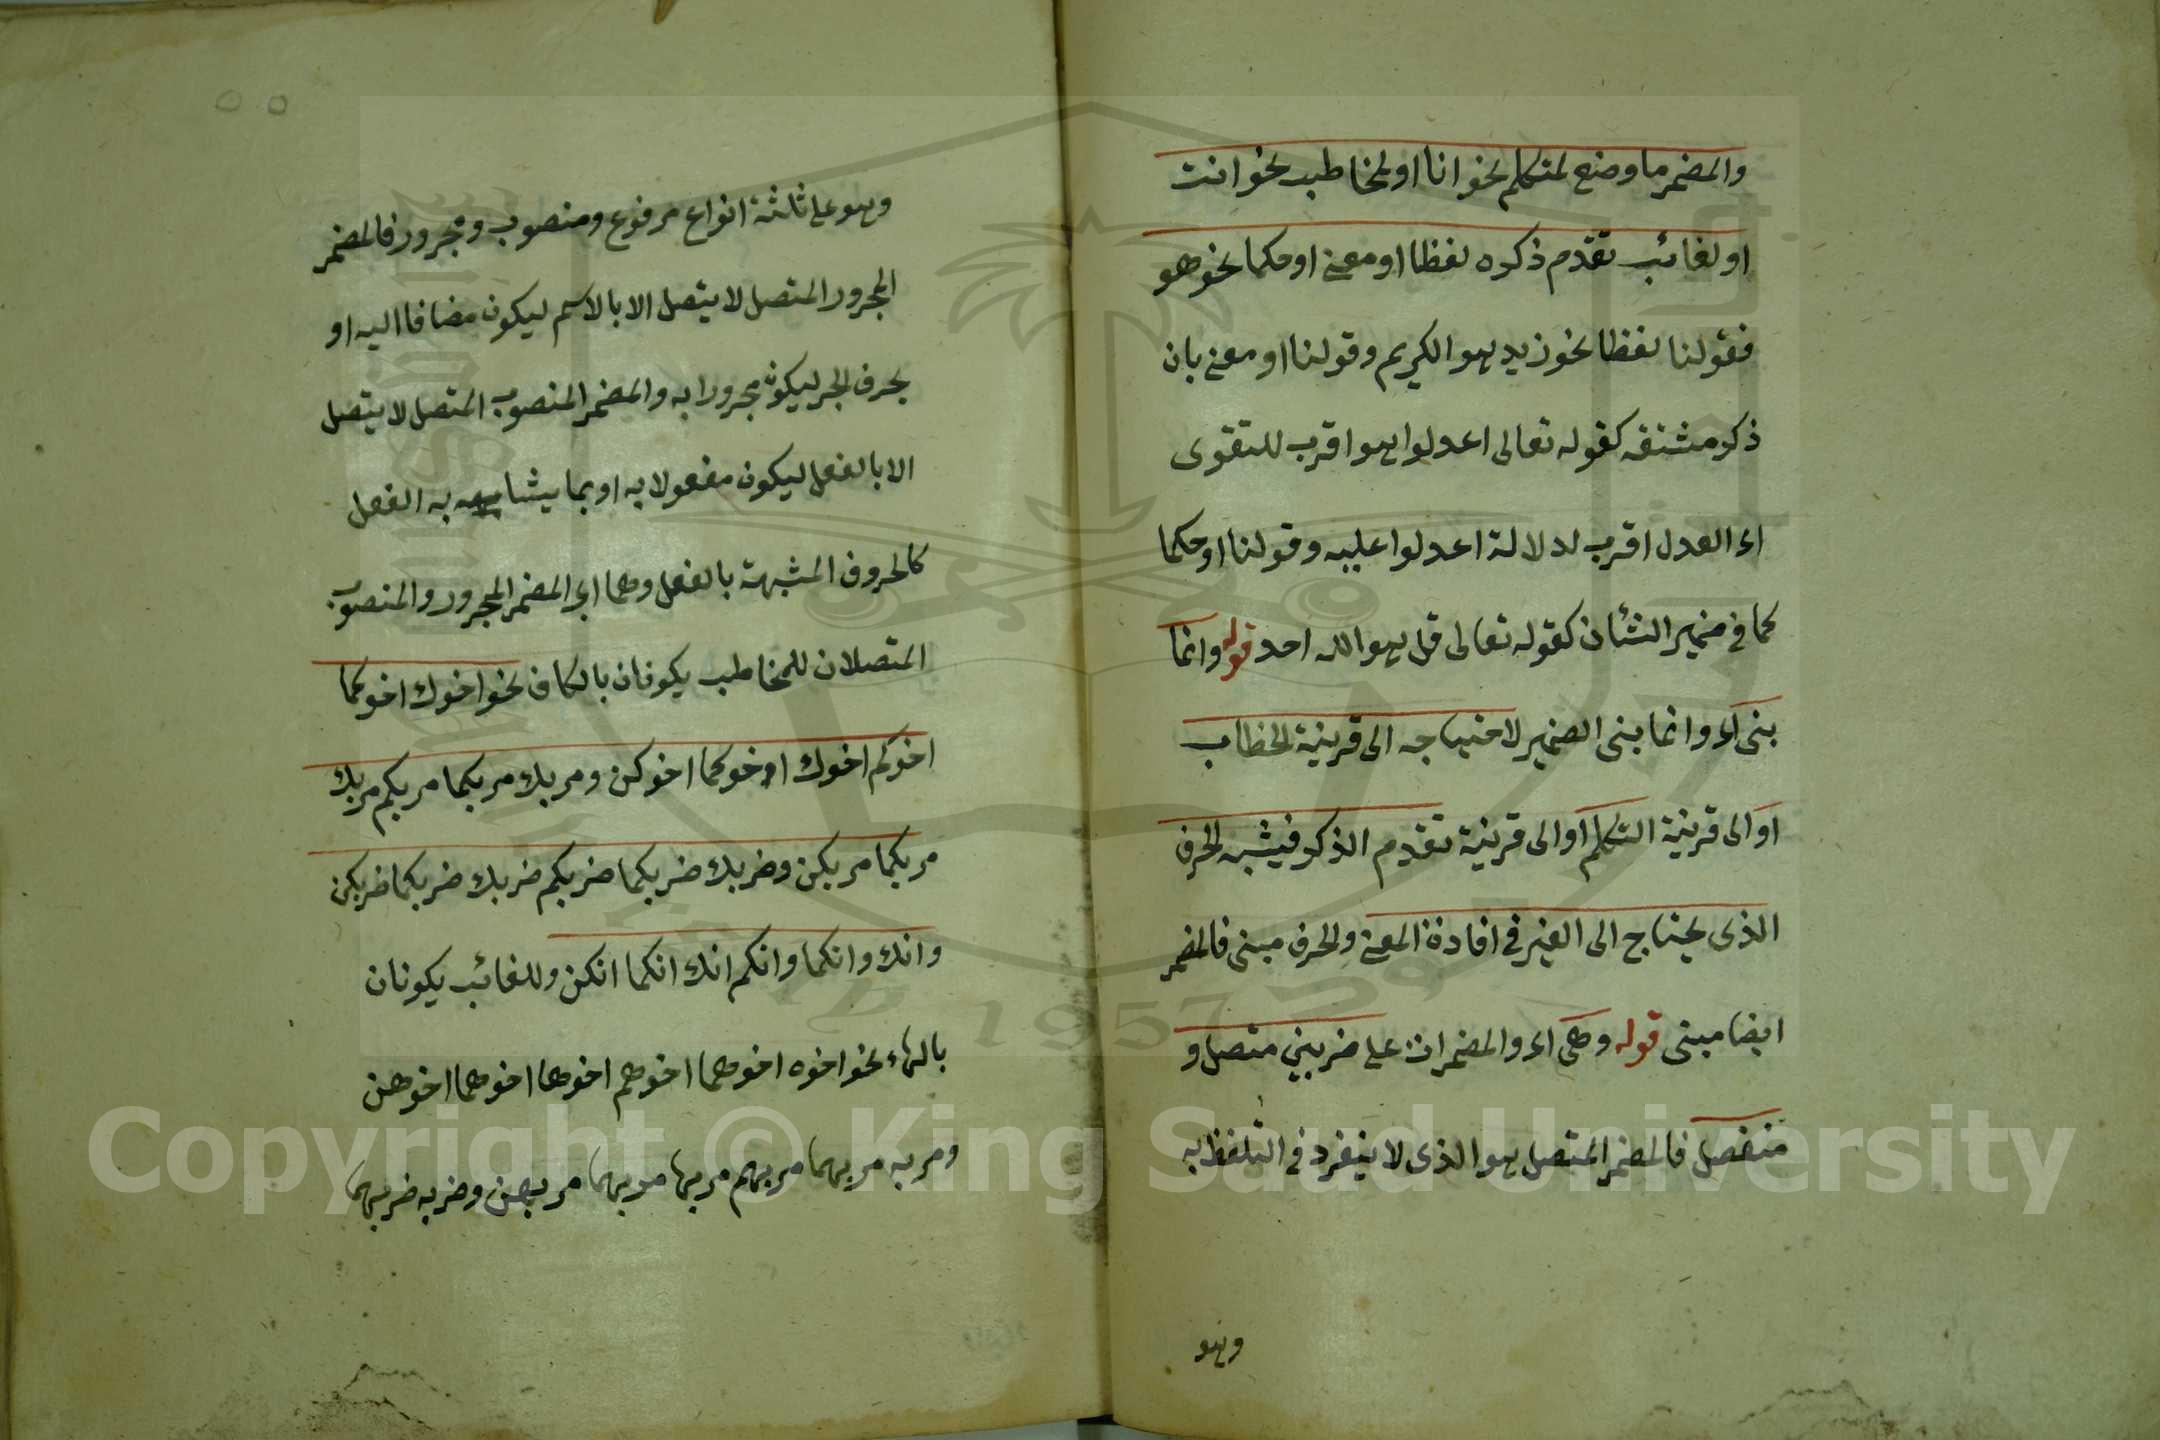 والمضمر ما وضع لمتكلم نحو انا او لمخاطب نحو انت
او لغائب تقدم ذكره لفظا او معنى او حكما نحو هو
فقولنا لفظا نحو زيد هو الكريم وقولنا او معنى بان
ذكر مشتقه كقوله تعالى اعدلوا هو اقرب للتقوى
اى العدل اقرب لدلالة اعدلوا عليه وقولنا او حكما
كما فى ضمير الشان كقوله تعالى قل هو الله احد قوله وانما
بنى اى وانما بنى الضمير لاحتياجه الى قرينة الخطاب
او الى قرينة التكلم او الى قرينة تقدم الذكر فيشبه الحرف
الذى يحتاج الى الغير فى افادة المعنى والحرف مبنى فالمضمر
ايضا مبنى قوله وهى اى والمضمرات على ضربين متصل و
منفصل فالمضمر المتصل هو الذى لا ينفرد فى التلفظ به
وهو
وهو على ثلثة انواع مرفوع ومنصوب ومجرور فالمضمر
المجرور المتصل لا يتصل الا بالاسم ليكون مضافا اليه او
بحرف الجر ليكون مجرورا به والمضمر المنصوب المتصل لا يتصل
الا بالفعل ليكون مفعولا به او بما يشابهه به الفعل
كالحروف المشبهة بالفعل وهما اى المضمر المجرور والمنصوب
المتصلان للمخاطب يكونان بالكاف نحو اخوك اخوكما
اخوكم اخوك اوخوكما اخوكن ومر بك مر بكما مر بكم مر بك
مر بكما مر بكن وضربك ضربكما ضربكم ضربك ضربكما ضربكن
وانك وانكما وانكم انك انكما انكن وللغائب يكونان
بالهاء نحو اخوه اخوهما اخوهم اخوها اخوهما اخوهن
ومر به مر بهما مر بهم مر بها مر بهما مر بهن وضربه ضربهما
Copyright © King Saud University
1957